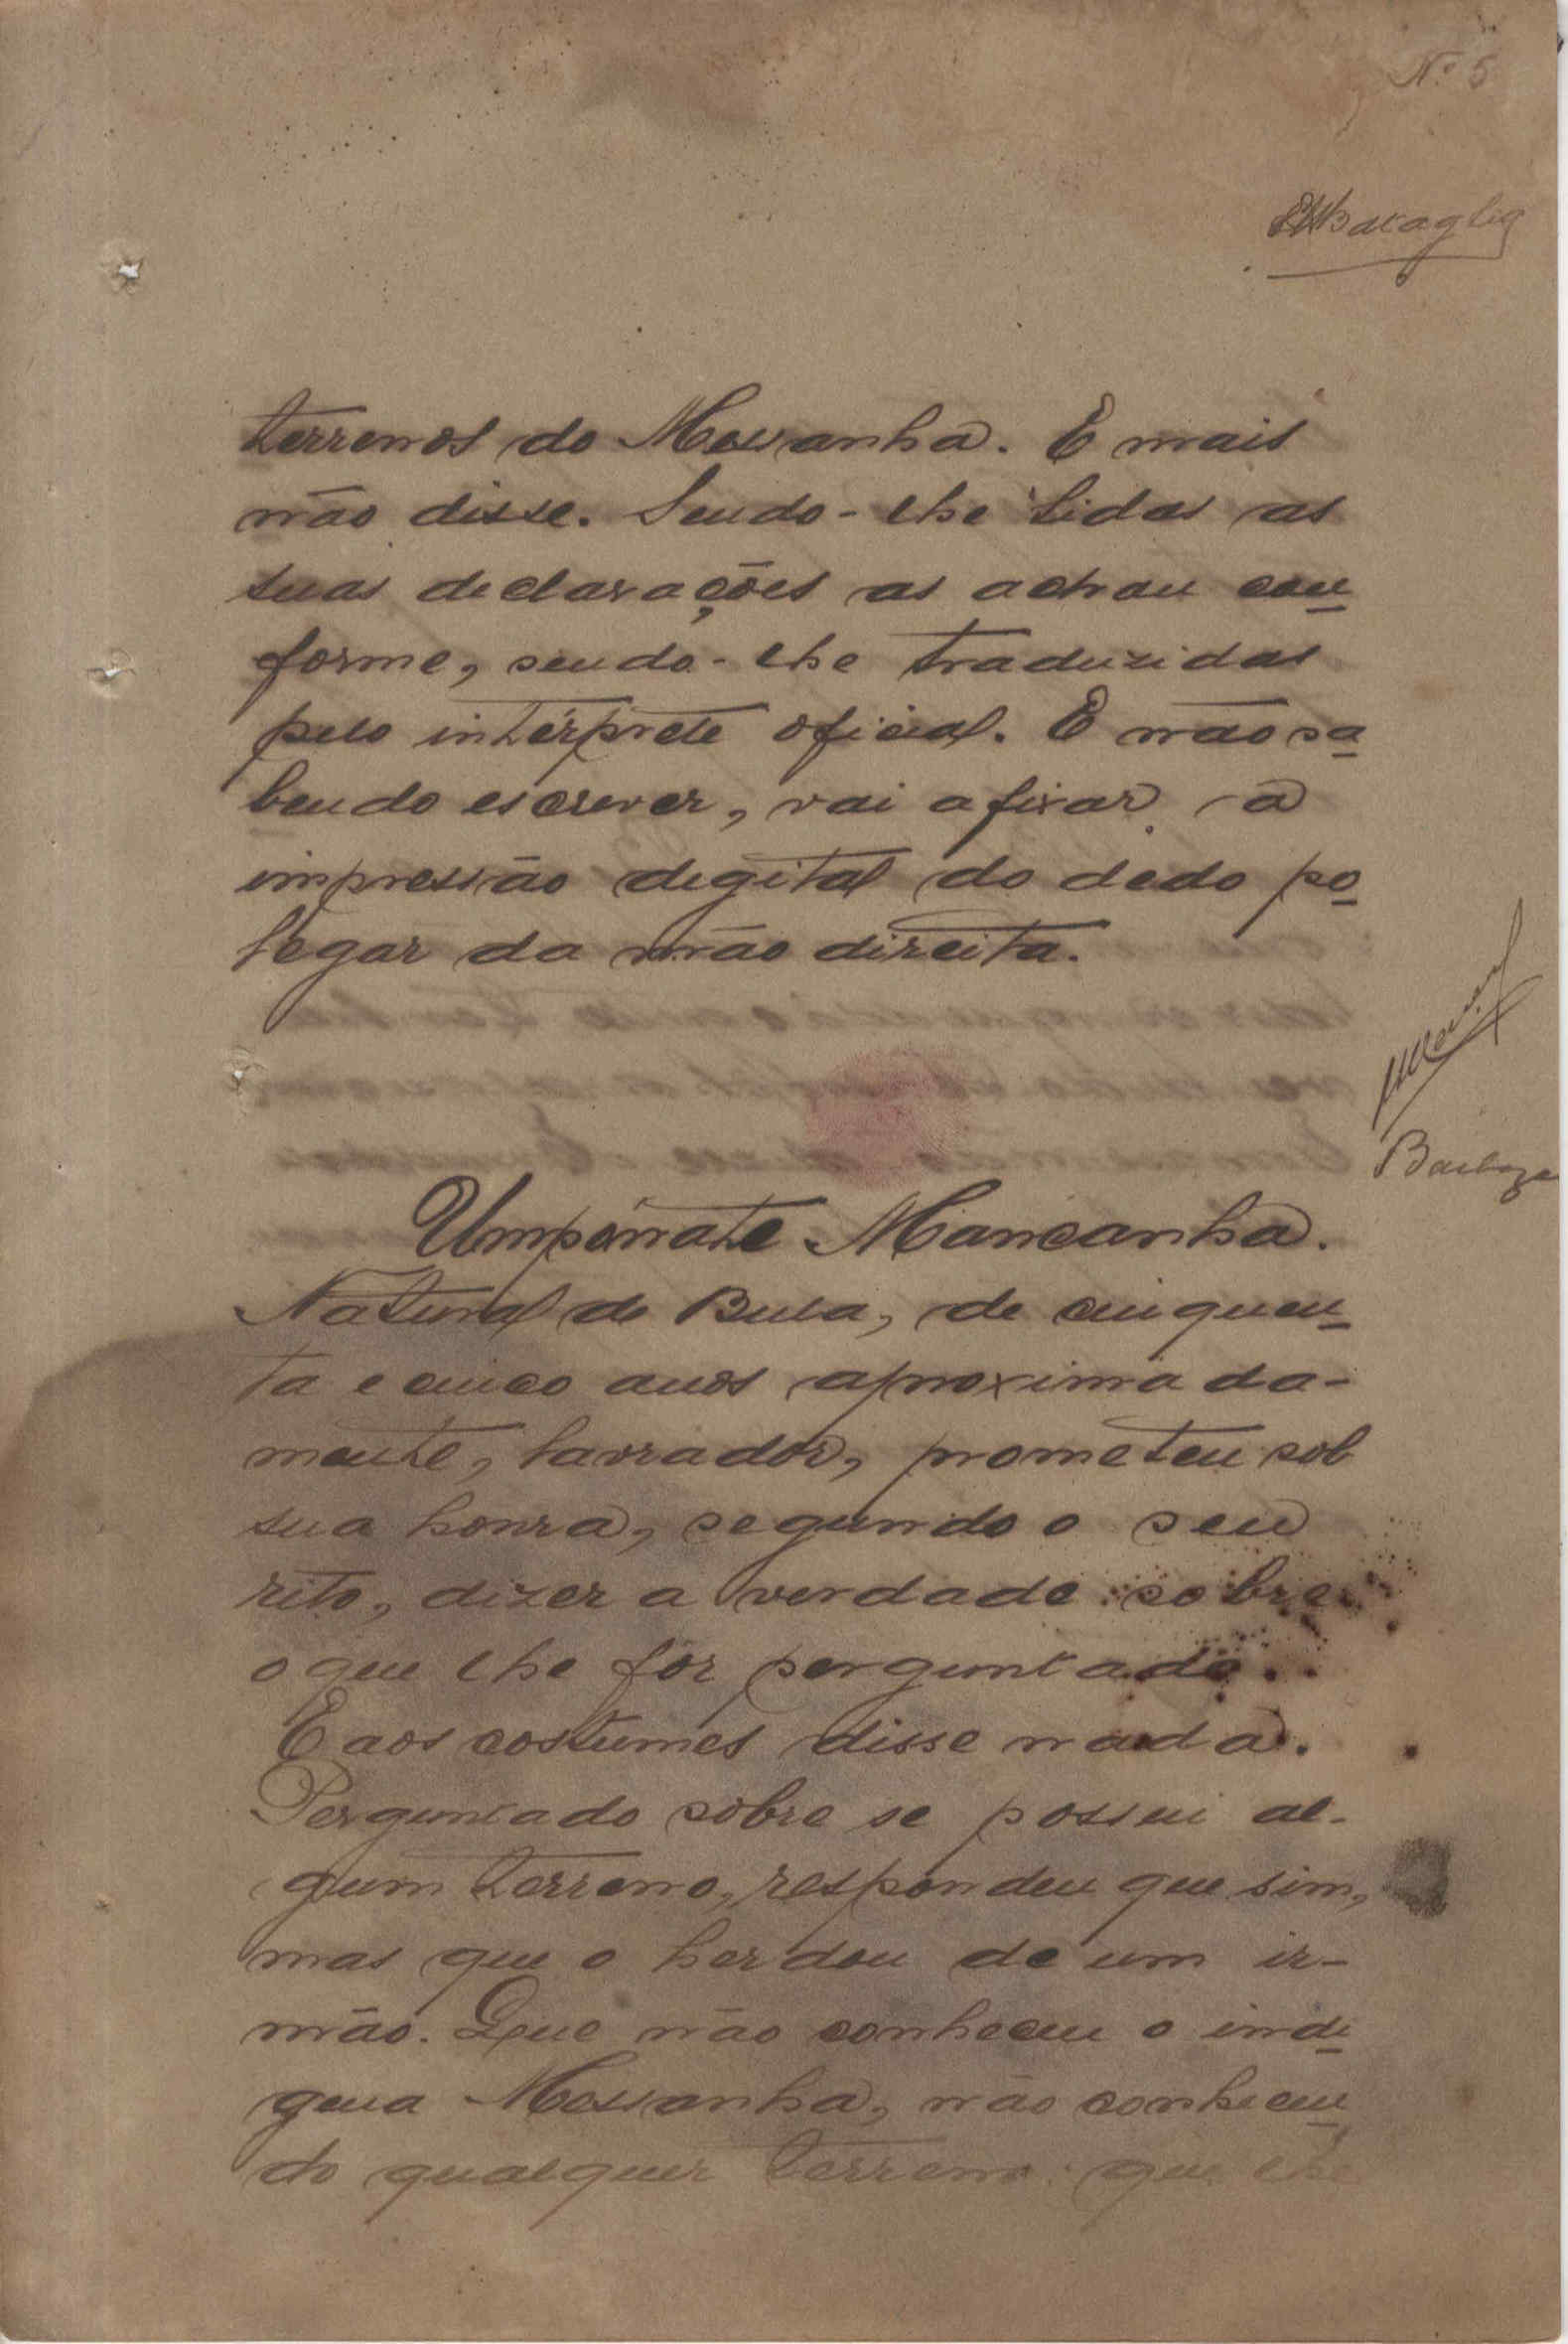 Nº 5
terrenos do Mossanha. E mais
não disse. Sendo-lhe lidas as
suas declarações as achou con
forme, sendo-lhe traduzidas
pelo intérprete oficial. E não sa
bendo escrever, vai afixar a
impressão degital do dedo po
legar da mão direita.
Barboza
Mancanha.
Natural de Bula, de cinquen
ta e cinco anos aproximada-
mente, lavrador, prometeu sob
sua honra, segundo o seu
rito, dizer a verdade sobre
o que lhe fôr perguntado.
E aos costumes disse nada.
Perguntado sobre se possui al-
gum terreno, respondeu que sim,
mas que o herdou de um ir-
mão. Que não conheceu o indi
gena Mossanha, não conhecen
do qualquer terreno que lhe